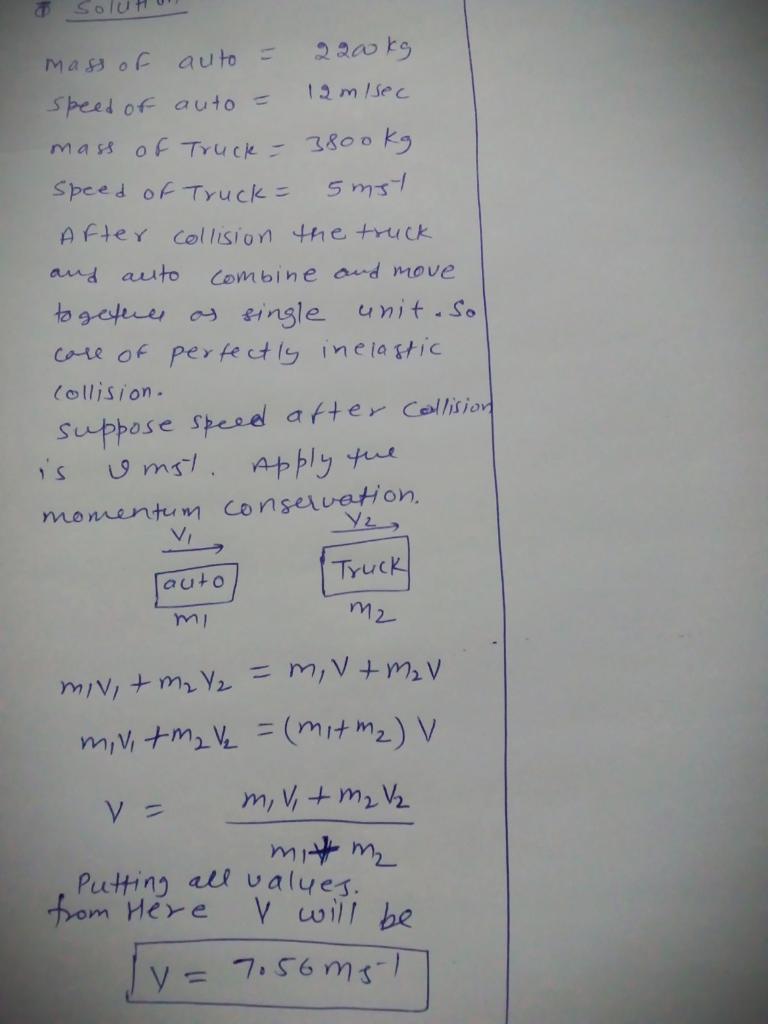 Solution
mass of auto = 2200 kg
speed of auto = 12 m/sec
mass of Truck = 3800 kg
Speed of Truck = 5 ms⁻¹
After collision the truck
and auto combine and move
together as single unit. So
case of perfectly inelastic
collision.
suppose speed after collision
is v ms⁻¹. Apply the
momentum conservation.
V₁ V₂
auto Truck
m₁ m₂
m₁V₁ + m₂V₂ = m₁V + m₂V
m₁V₁ + m₂V₂ = (m₁ + m₂) V
V = m₁V₁ + m₂V₂
m₁ + m₂
Putting all values.
from Here V will be
V = 7.56 ms⁻¹